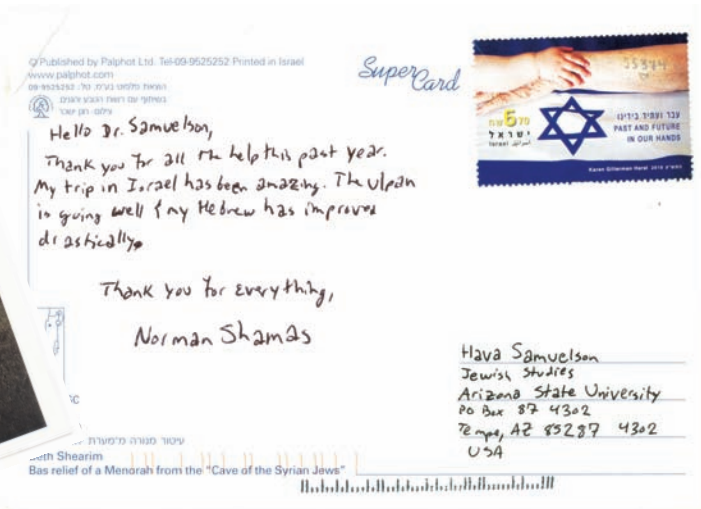 © Published by Palphot Ltd. Tel-09-9525252 Printed in Israel
www.palphot.com
הוצאת פלפוט בע״מ טל: 09-9525252
בשיתוף עם רשות הטבע והגנים
Super Card
35384
שח 6.70
ישראל
اسرائيل Israel
עבר ועתיד בידינו
PAST AND FUTURE
IN OUR HANDS
Karen Gillerman-Harel 2010
Hello Dr. Samuelson,
Thank you for all the help this past year.
My trip in Israel has been amazing. The ulpan
is going well & my Hebrew has improved
drastically.
Thank you for everything,
Norman Shamas
Hava Samuelson
Jewish Studies
Arizona State University
PO Box 87 4302
Tempe, AZ 85287 4302
USA
עיטור מנורה מ״מערת
Shearim
Bas relief of a Menorah from the "Cave of the Syrian Jews"